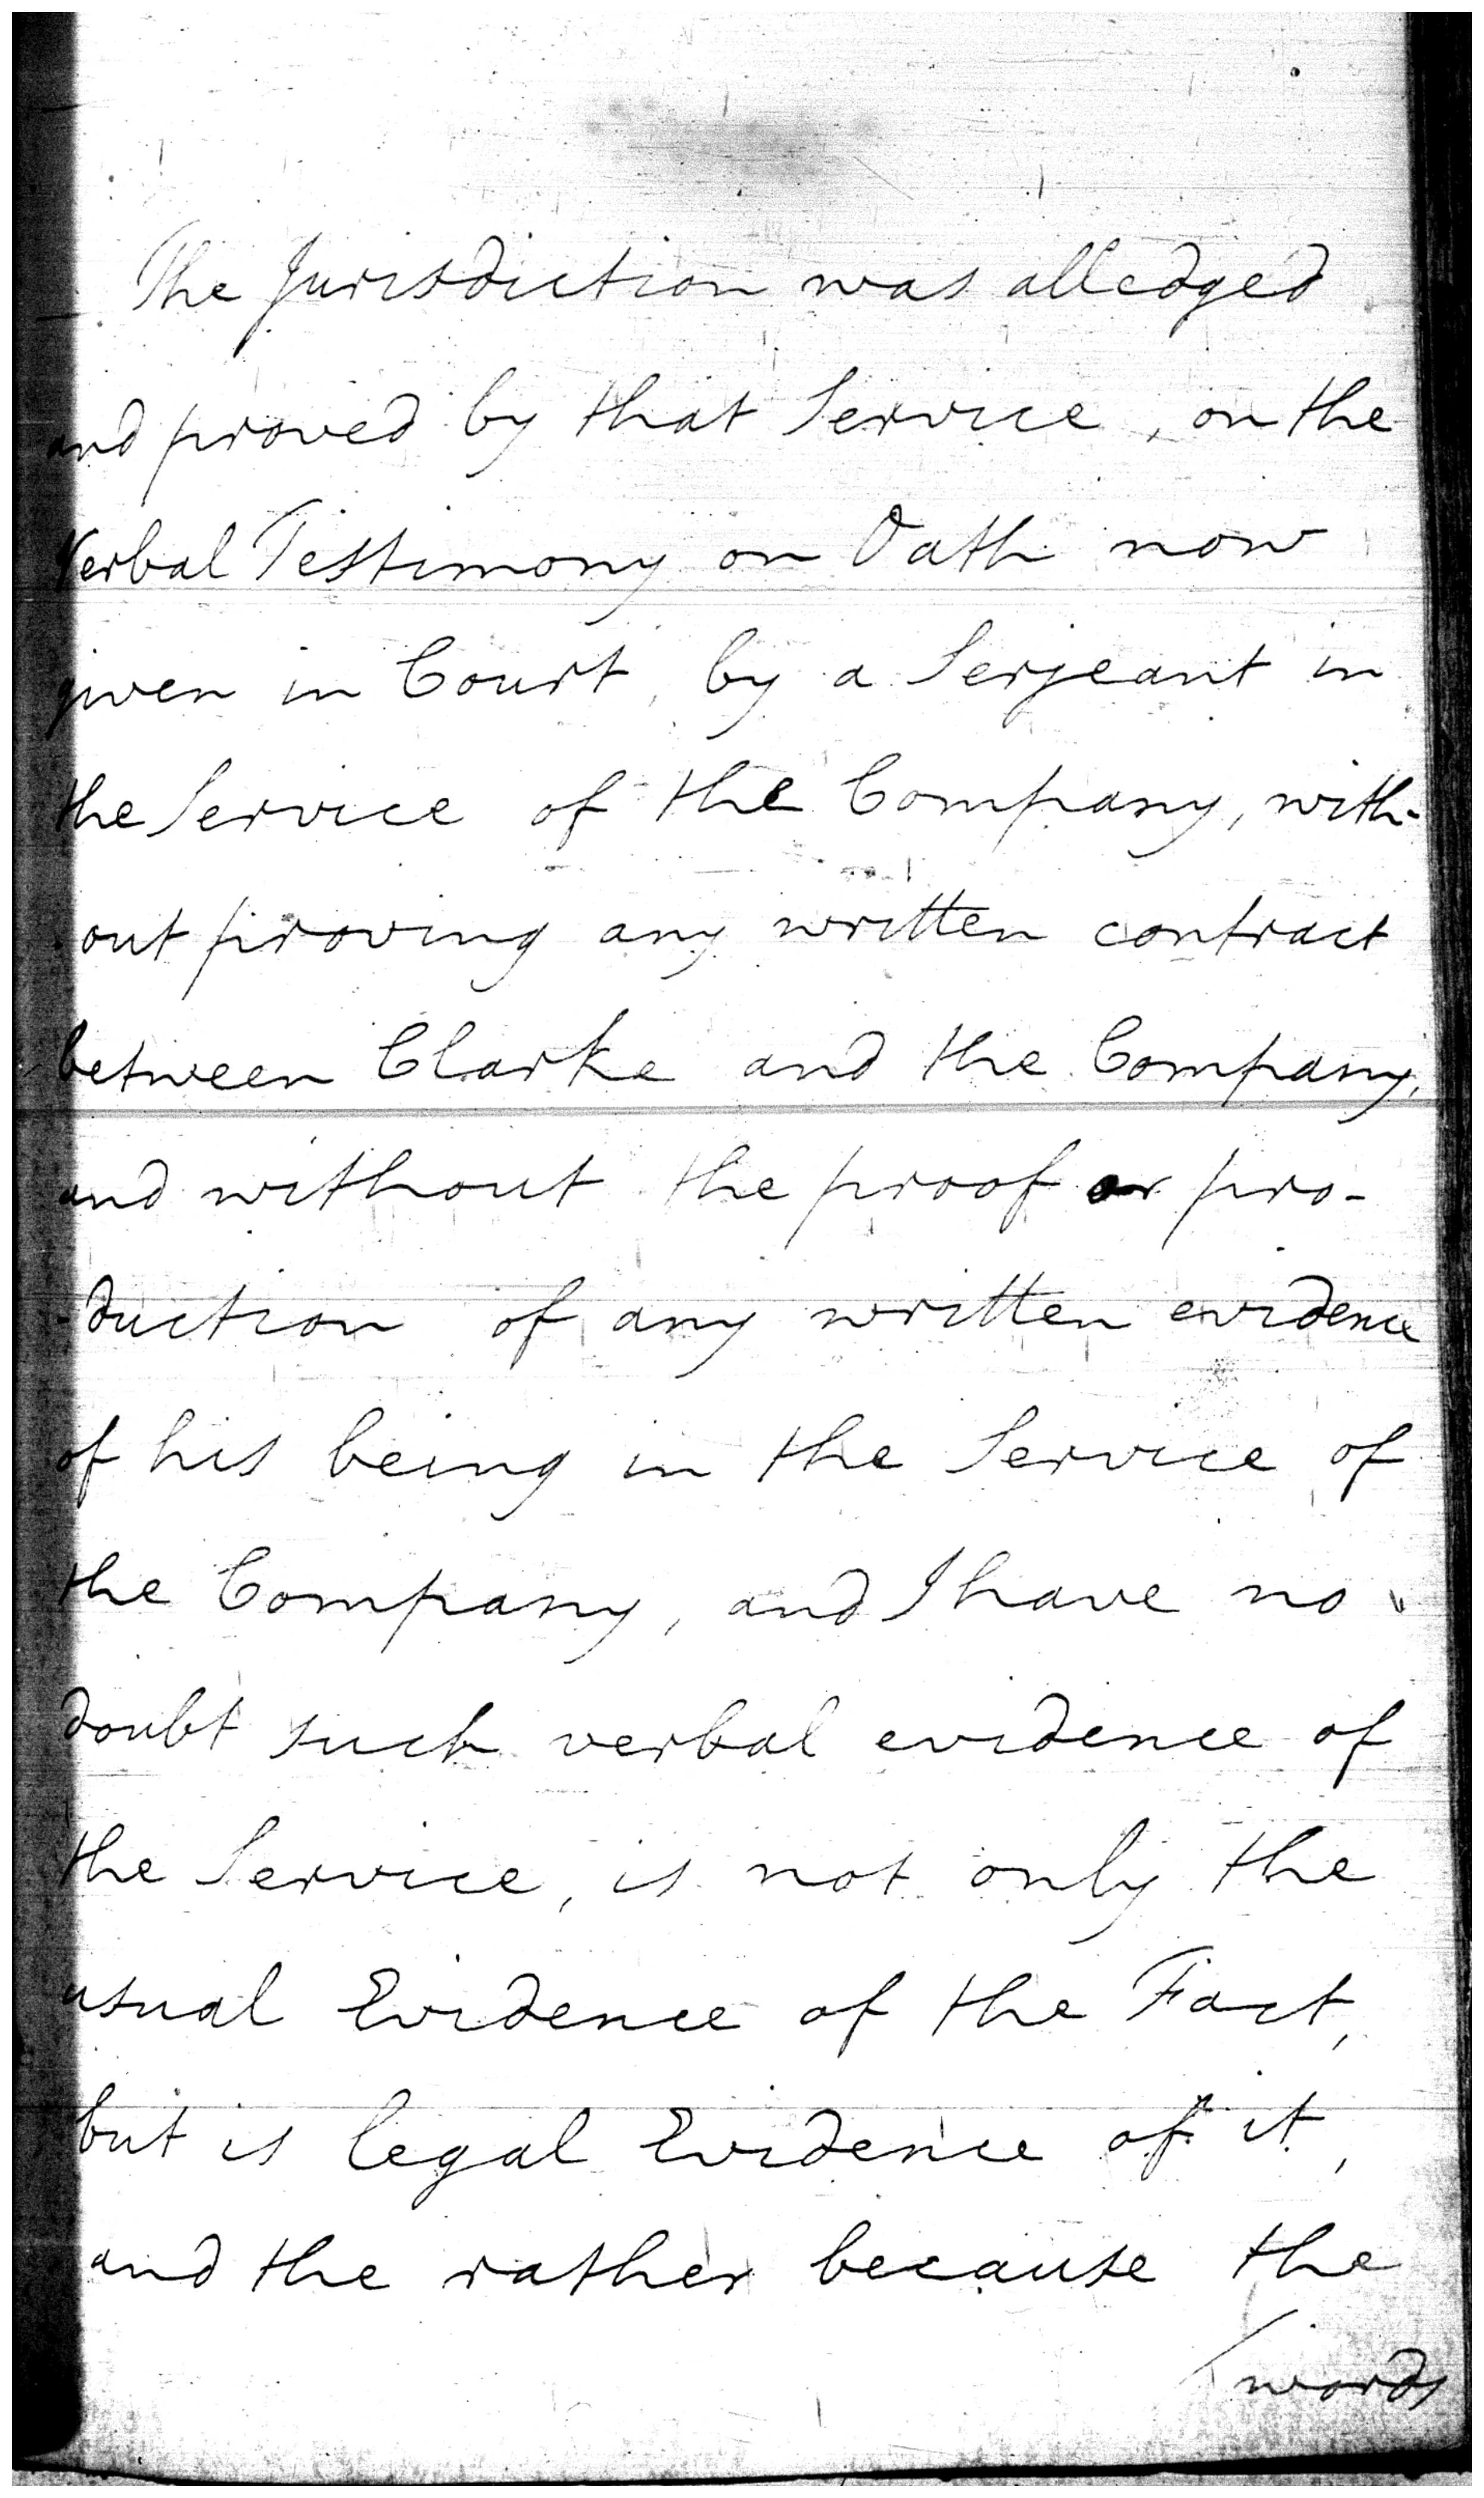 The Jurisdiction was alledged
and proved by that Service, on the
Verbal Testimony on Oath now
given in Court, by a Serjeant in
the Service of the Company, with-
out proving any written contract
between Clarke and the Company,
and without the proof or pro-
-duction of any written evidence
of his being in the Service of
the Company, and I have no
doubt such verbal evidence of
the Service, is not only the
usual Evidence of the Fact,
but is legal Evidence of it,
and the rather because the
words